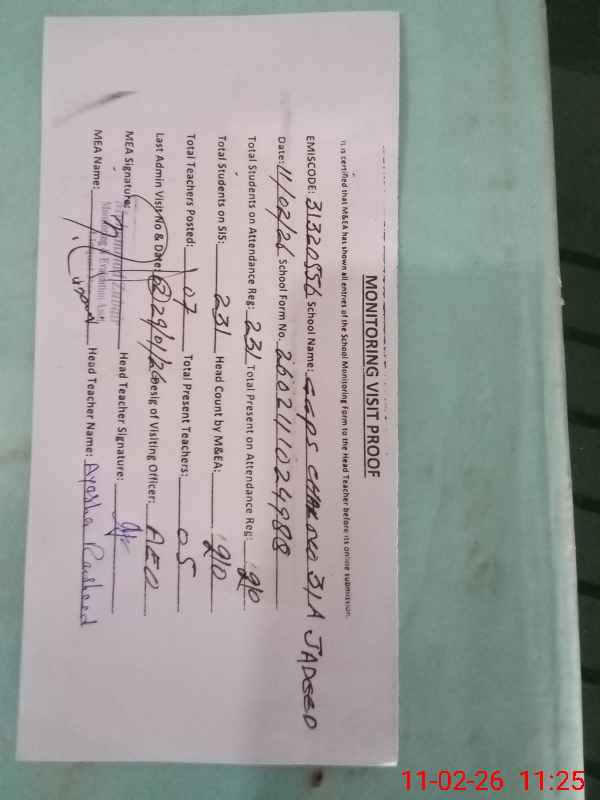 MONITORING VISIT PROOF
It is certified that M&EA has shown all entries of the School Monitoring Form to the Head Teacher before its online submission.
EMISCODE: 31320556 School Name: GGPS CHAK NO 31A JADEED
Date: 11/02/26 School Form No. 2602411024988
Total Students on Attendance Reg: 231 Total Present on Attendance Reg: 210
Total Students on SIS: 231 Head Count by M&EA: 210
Total Teachers Posted: 07 Total Present Teachers: 05
Last Admin Visit No & Date: 29/01/26 Desig of Visiting Officer: AEO
MEA Signature: Head Teacher Signature:
Monitoring & Evaluation
MEA Name: Head Teacher Name: Ayesha Rasheed
11-02-26 11:25